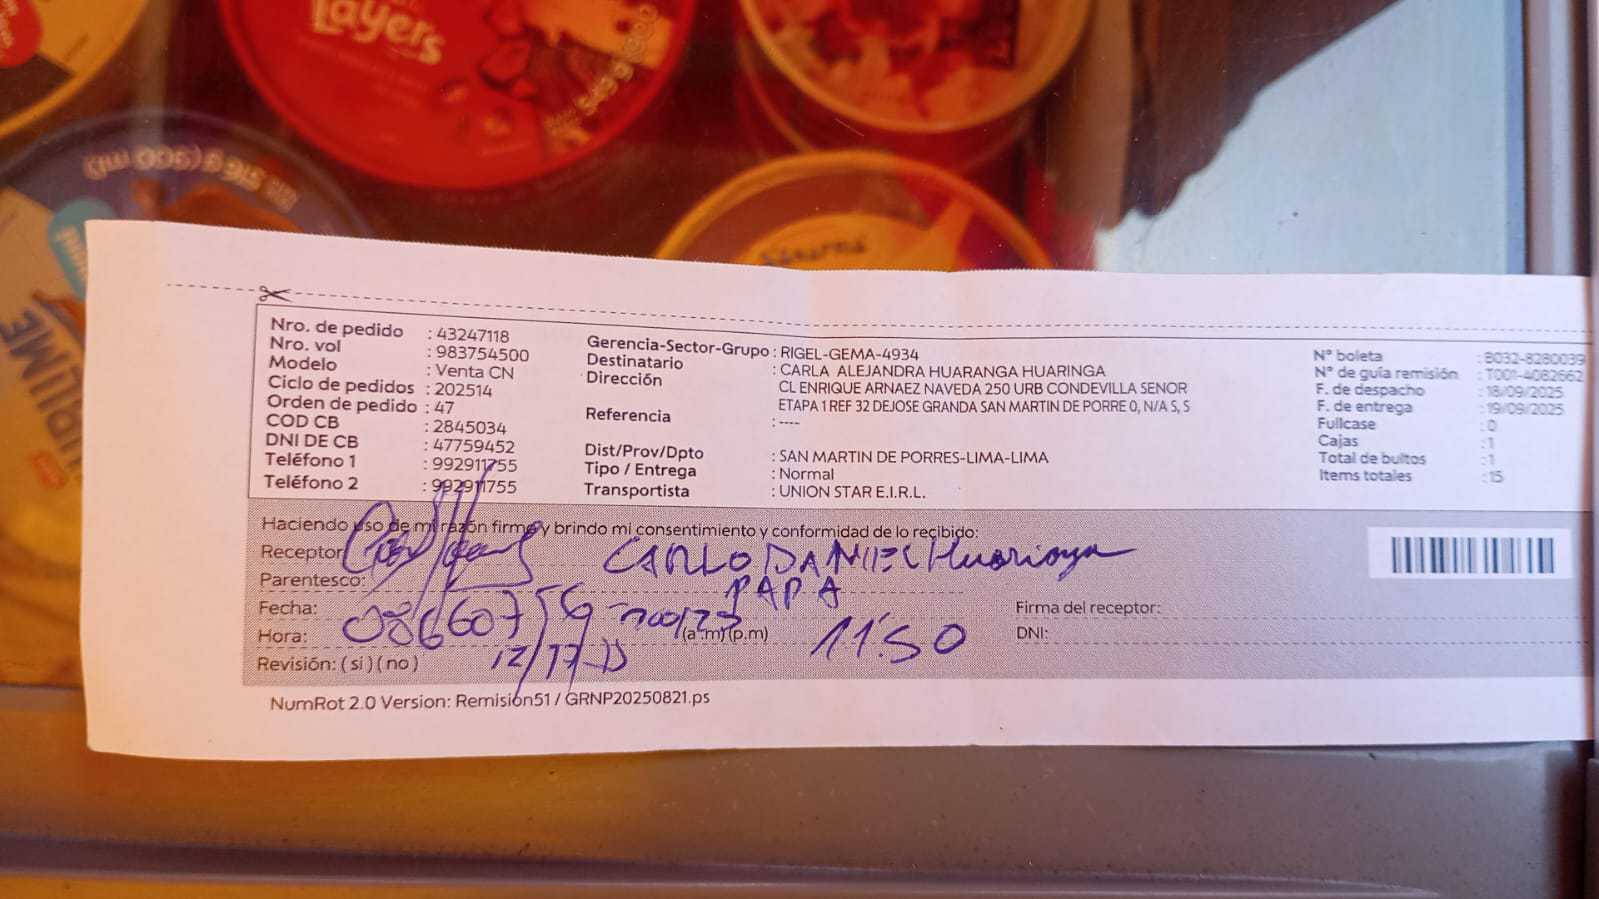 Layers
SUBLIME
Nro. de pedido : 43247118
Nro. vol : 983754500
Modelo : Venta CN
Ciclo de pedidos : 202514
Orden de pedido : 47
COD CB : 2845034
DNI DE CB : 47759452
Teléfono 1 : 992911755
Teléfono 2 : 992911755
Gerencia-Sector-Grupo : RIGEL-GEMA-4934
Destinatario : CARLA ALEJANDRA HUARANGA HUARINGA
Dirección CL ENRIQUE ARNAEZ NAVEDA 250 URB CONDEVILLA SENOR
ETAPA 1 REF 32 DEJOSE GRANDA SAN MARTIN DE PORRE 0, N/A S, S
Referencia : ----
Dist/Prov/Dpto : SAN MARTIN DE PORRES-LIMA-LIMA
Tipo / Entrega : Normal
Transportista : UNION STAR E.I.R.L.
N° boleta : B032-8280039
N° de guía remisión : T001-4082662
F. de despacho : 18/09/2025
F. de entrega : 19/09/2025
Fullcase : 0
Cajas : 1
Total de bultos : 1
Items totales : 15
Haciendo uso de mi razón firmo y brindo mi consentimiento y conformidad de lo recibido:
Receptor CARLO DANIEL Huaringa
Parentesco: PAPA
Fecha: 08660775
Hora: (a.m)(p.m) 11:50
Revisión: ( si ) ( no )
Firma del receptor:
DNI:
NumRot 2.0 Version: Remisión51 / GRNP20250821.ps